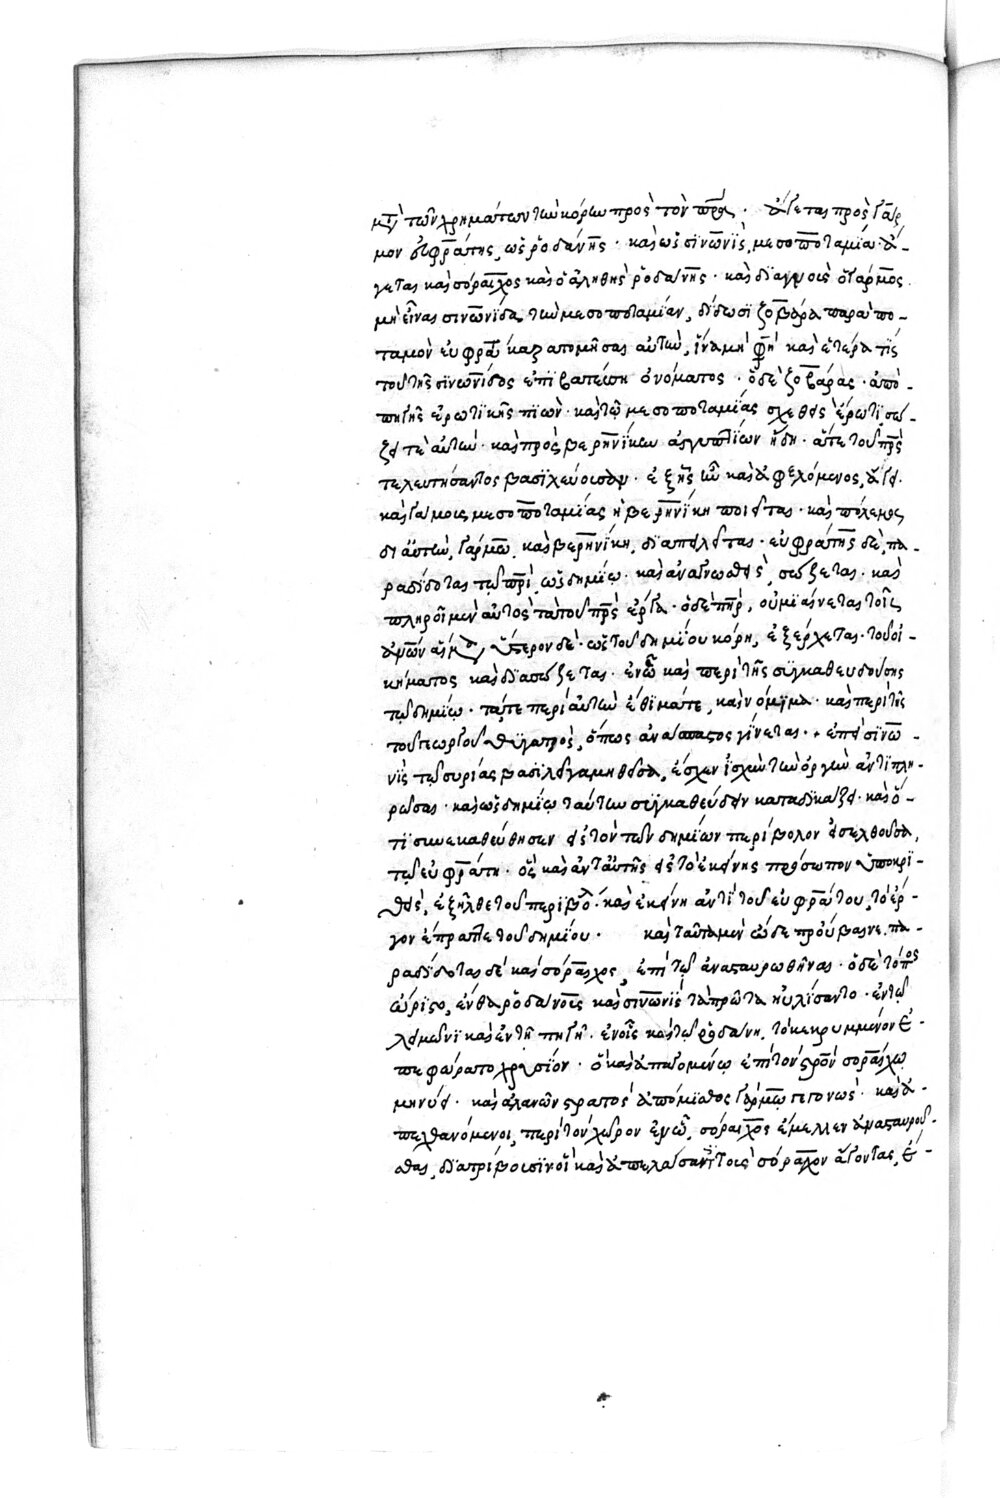 μετὰ τῶν χρημάτων τὴν κόρην πρὸς τὸν πατέρα · ἄγεται πρὸς Γάρ-
μον Εὐφράτης, ὡς Ῥοδάνης · καὶ ὡς Σινωνὶς, Μεσοποταμία · ἄ-
γεται καὶ Σόραιχος καὶ ὁ ἀληθὴς Ῥοδάνης · καὶ διαγνοὺς ὁ Γάρμος
μὴ εἶναι Σινωνίδα τὴν Μεσοποταμίαν, δίδωσι Ζοβάρα παρὰ πο-
ταμὸν Εὐφράτην καρατομῆσαι αὐτὴν, ἵνα μὴ φησὶ καὶ ἑτέρα τις
τοῦ τῆς Σινωνίδος ἐπιβατεύσῃ ὀνόματος · ὁ δὲ Ζοβάρας · ἀπὸ
πηγῆς ἐρωτικῆς πιὼν · καὶ τῷ Μεσοποταμίας σχεθεὶς ἔρωτι σώ-
ζει τε αὐτὴν · καὶ πρὸς Βερηνίκην Αἰγυπτίων ἤδη · ἅτε τοῦ πατρὸς
τελευτήσαντος βασιλεύουσαν · ἐξ ἧς ἦν καὶ ἀφελόμενος, ἄγει ·
καὶ γάμους Μεσοποταμίας ἡ Βερηνίκη ποιεῖται · καὶ πόλεμος
δι' αὐτὴν, Γάρμῳ καὶ Βερηνίκῃ, διαπειλεῖται · Εὐφράτης δὲ, πα-
ραδίδοται τῷ πατρὶ ὡς δημίῳ · καὶ ἀναγνωσθεὶς, σώζεται · καὶ
πληροῖ μὲν αὐτὸς τὰ τοῦ πατρὸς ἔργα · ὁ δὲ πατὴρ, οὐ μιαίνεται τοῖς
ἀνθρώπων αἵμασιν ὕστερον δὲ · ὡς τοῦ δημίου κόρη, ἐξέρχεται · τοῦ οἰ-
κήματος καὶ διασώζεται · ἐν ᾧ καὶ περὶ τῆς συγκαθευδούσης
τῷ δημίῳ · τά τε περὶ αὐτὴν ἔθιμά τε, καὶ νόμιμα · καὶ περὶ τῆς
τοῦ γεωργοῦ θυγατρὸς, ὅπως ἀνάσπαστος γίνεται · ἐπεὶ Σινω-
νὶς τῷ Συρίας βασιλεῖ γαμηθεῖσα, ἔσχεν ἰσχὺν τὴν ὀργὴν ἀντιπλη-
ρῶσαι · καὶ ὡς δημίῳ ταύτην συγκαθεύδειν καταδικάζει · καὶ ὅ-
τι συνεκαθεύθησεν εἰς τὸν τῶν δημίων περίβολον εἰσελθοῦσα,
τῷ Εὐφράτῃ · ὃς καὶ ἀντ' αὐτῆς εἰς τὸ ἐκείνης πρόσωπον ὑποκρι-
θεὶς, ἐξῆλθε τοῦ περιβόλου · καὶ ἐκείνη ἀντὶ τοῦ Εὐφράτου, τὸ ἔρ-
γον ἔπραττε τοῦ δημίου · καὶ ταῦτα μὲν ὧδε προύβαινε · πα-
ραδίδοται δὲ καὶ Σόραιχος, ἐπὶ τῷ ἀνασταυρωθῆναι · ὁ δὲ τόπος
ὥριστο, ἔνθα Ῥοδάνης καὶ Σινωνὶς τὰ πρῶτα ηὐλίσαντο · ἐν τῷ
λειμῶνι καὶ ἐν τῇ πηγῇ · ἐν οἷς καὶ τῷ Ῥοδάνῃ, τὸ κεκρυμμένον ἐ-
πεφώρατο χρυσίον · ὃ καὶ ἀπαγομένῳ ἐπὶ τὸν σταυρὸν Σοράιχῳ
μηνύει · καὶ Ἀλανῶν στρατὸς ἀπόμισθος Γάρμῳ γεγονὼς · καὶ ἀ-
πεχθανόμενοι, περὶ τὸν χῶρον ἐν ᾧ Σόραιχος ἔμελλεν ἀνασταυροῦ-
σθαι, διατρίβουσιν οἳ καὶ ἀπελάσαντες τοὺς Σόραιχον ἄγοντας, ἔ-